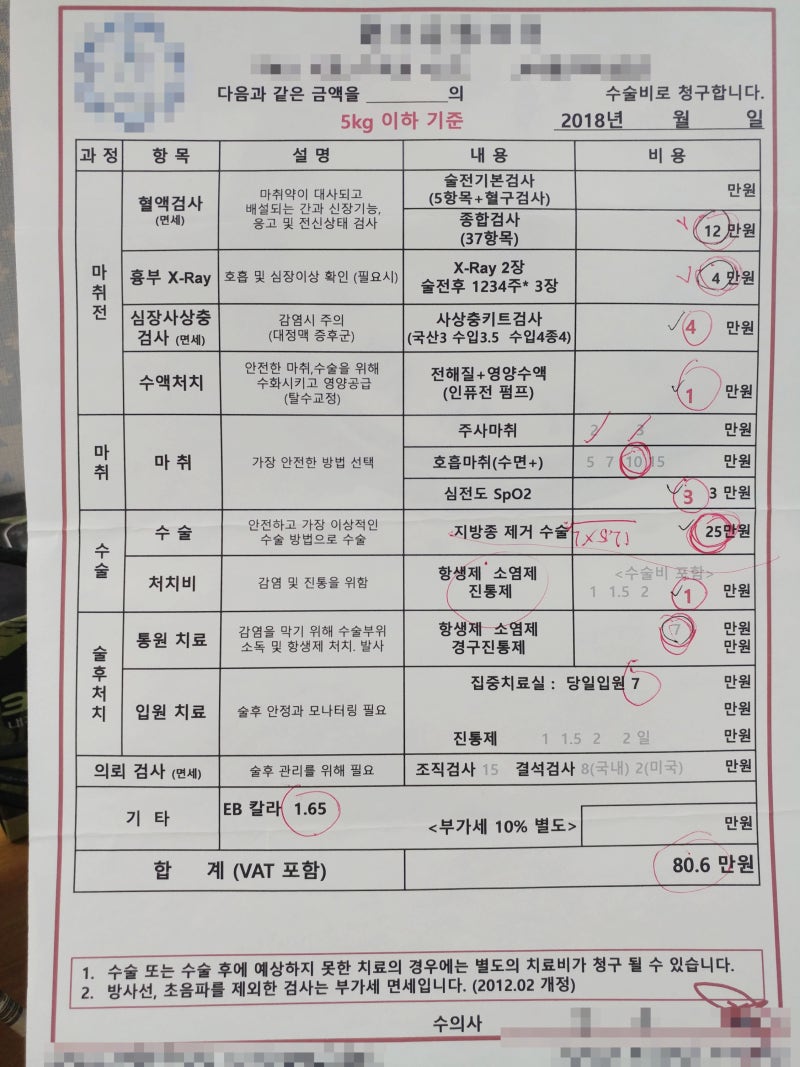 다음과 같은 금액을 ________의 수술비로 청구합니다.
5kg 이하 기준 2018년 월 일
과 정 항 목 설 명 내 용 비 용
마취전
혈액검사
(면세)
마취약이 대사되고
배설되는 간과 신장기능,
응고 및 전신상태 검사
술전기본검사
(5항목+혈구검사)
만원
종합검사
(37항목)
12 만원
흉부 X-Ray
호흡 및 심장이상 확인 (필요시)
X-Ray 2장
술전후 1234주* 3장
4 만원
심장사상충
검사 (면세)
감염시 주의
(대정맥 증후군)
사상충키트검사
(국산3 수입3.5 수입4종4)
4 만원
수액처치
안전한 마취,수술을 위해
수화시키고 영양공급
(탈수교정)
전해질+영양수액
(인퓨전 펌프)
1 만원
마취
마 취
가장 안전한 방법 선택
주사마취
2 3 만원
호흡마취(수면+)
5 7 10 15 만원
심전도 SpO2
3 3 만원
수술
수 술
안전하고 가장 이상적인
수술 방법으로 수술
지방종 제거 수술
12.5x2
25만원
처치비
감염 및 진통을 위함
항생제 소염제
진통제
<수술비 포함>
1 1.5 2 1 만원
술후처치
통원 치료
감염을 막기 위해 수술부위
소독 및 항생제 처치. 발사
항생제 소염제
경구진통제
7 만원
만원
입원 치료
술후 안정과 모나터링 필요
집중치료실 : 당일입원 7 만원
만원
진통제 1 1.5 2 2 일 만원
의뢰 검사 (면세)
술후 관리를 위해 필요
조직검사 15 결석검사 8(국내) 2(미국) 만원
기 타
EB 칼라 1.65
<부가세 10% 별도>
만원
합 계 (VAT 포함)
80.6 만원
1. 수술 또는 수술 후에 예상하지 못한 치료의 경우에는 별도의 치료비가 청구 될 수 있습니다.
2. 방사선, 초음파를 제외한 검사는 부가세 면세입니다. (2012.02 개정)
수의사